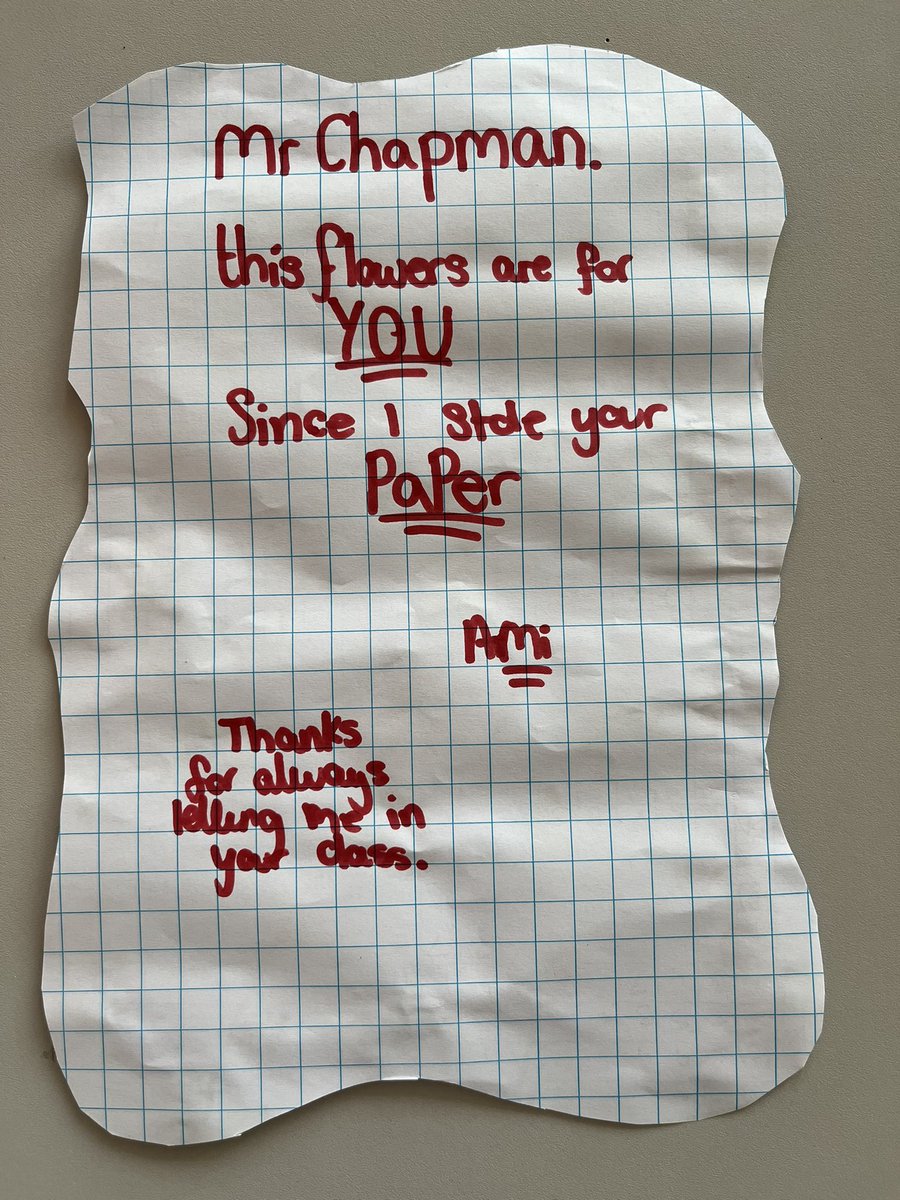 Mr Chapman.
this flowers are for
YOU
Since I stole your
PaPer
Ami
Thanks
for always
letting me in
your class.